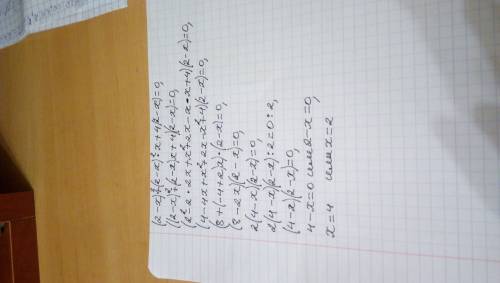 (2-x)²+(2-x)·x+4)(2-x)=0,
((2-x)²+(2-x)x+4)(2-x)=0,
(2²-2·2x+x²+2x-x·x+4)(2-x)=0,
(4-4x+x²+2x-x²+4)(2-x)=0,
(8+(-4+2)x)·(2-x)=0,
(8-2x)(2-x)=0,
2(4-x)(2-x)=0,
2(4-x)(2-x):2=0:2,
(4-x)(2-x)=0,
4-x=0 или 2-x=0,
x=4 или x=2